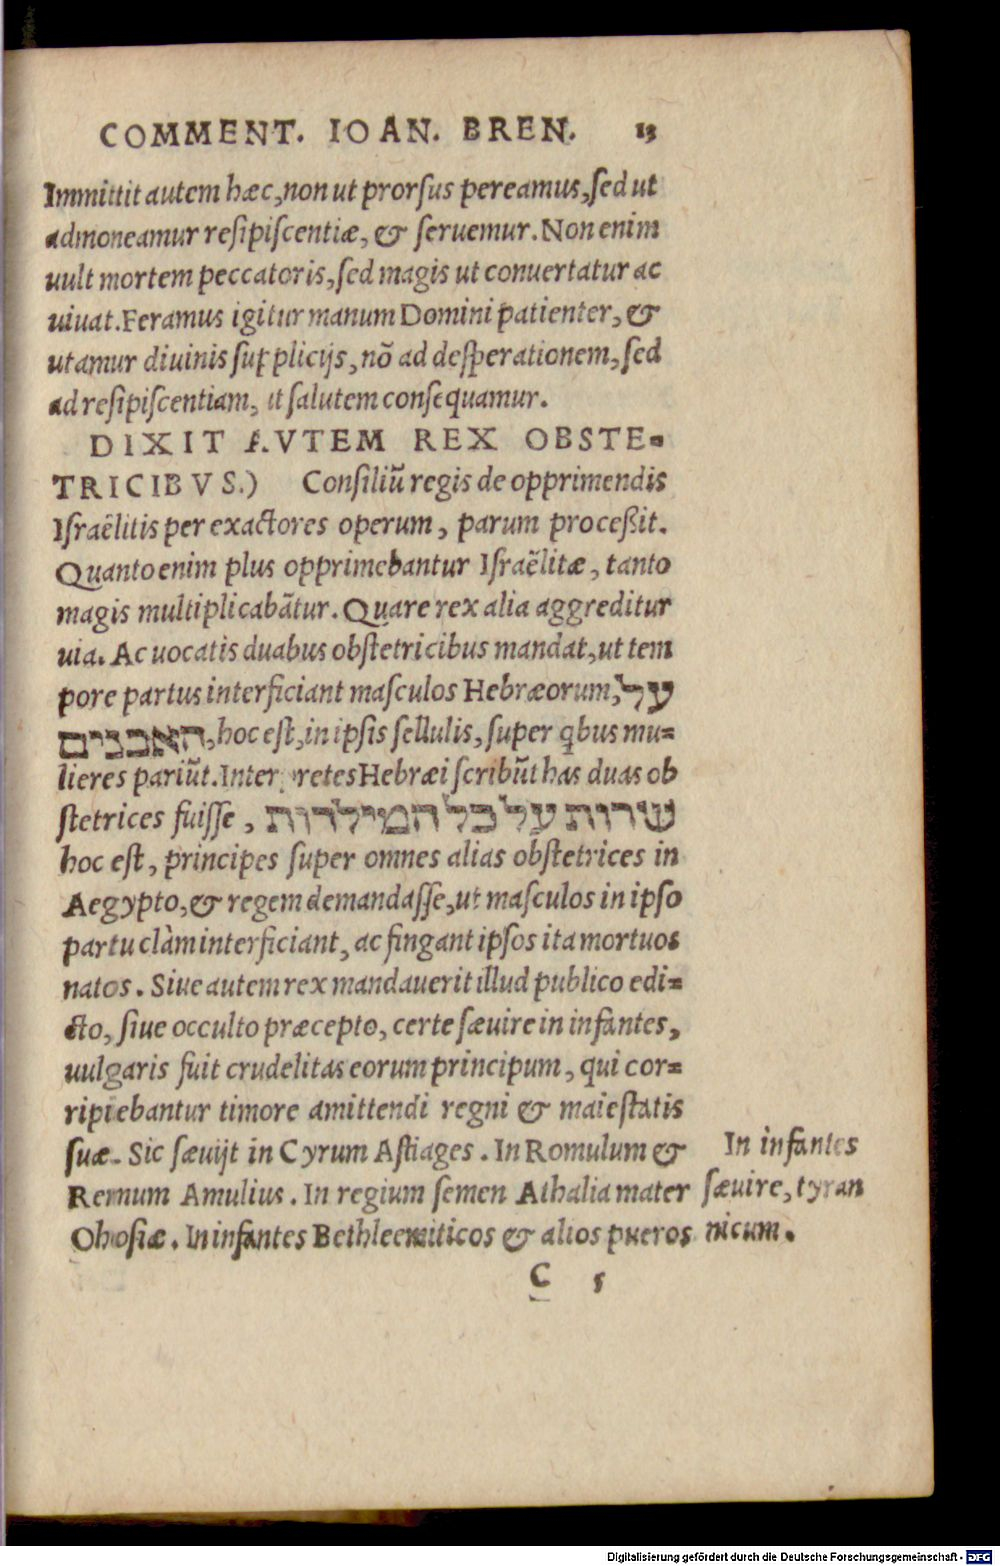 COMMENT. IOAN. BREN. 13
Immittit autem hæc, non ut prorſus pereamus, ſed ut
admoneamur reſipiſcentiæ, & ſeruemur. Non enim
uult mortem peccatoris, ſed magis ut conuertatur ac
uiuat. Feramus igitur manum Domini patienter, &
utamur diuinis ſupplicijs, nō ad deſperationem, ſed
ad reſipiſcentiam, ut ſalutem conſequamur.
DIXIT AVTEM REX OBSTE-
TRICIBVS.) Conſiliū regis de opprimendis
Iſraëlitis per exactores operum, parum proceßit.
Quanto enim plus opprimebantur Iſraëlitæ, tanto
magis multiplicabātur. Quare rex alia aggreditur
uia. Ac uocatis duabus obſtetricibus mandat, ut tem
pore partus interficiant maſculos Hebræorum, על
האבנים, hoc eſt, in ipſis ſellulis, ſuper qbus mu-
lieres pariūt. Interpretes Hebræi ſcribūt has duas ob
ſtetrices fuiſſe, שרות על כל המילדות
hoc eſt, principes ſuper omnes alias obſtetrices in
Aegypto, & regem demandaſſe, ut maſculos in ipſo
partu clàm interficiant, ac fingant ipſos ita mortuos
natos. Siue autem rex mandauerit illud publico edi-
cto, ſiue occulto præcepto, certe ſæuire in infantes,
uulgaris fuit crudelitas eorum principum, qui cor-
ripiebantur timore amittendi regni & maieſtatis
ſuæ. Sic ſæuijt in Cyrum Aſtiages. In Romulum &
Remum Amulius. In regium ſemen Athalia mater
Ohoſiæ. In infantes Bethleemiticos & alios pueros
In infantes
ſæuire, tyran
nicum.
C 5
Digitalisierung gefördert durch die Deutsche Forschungsgemeinschaft - DFG